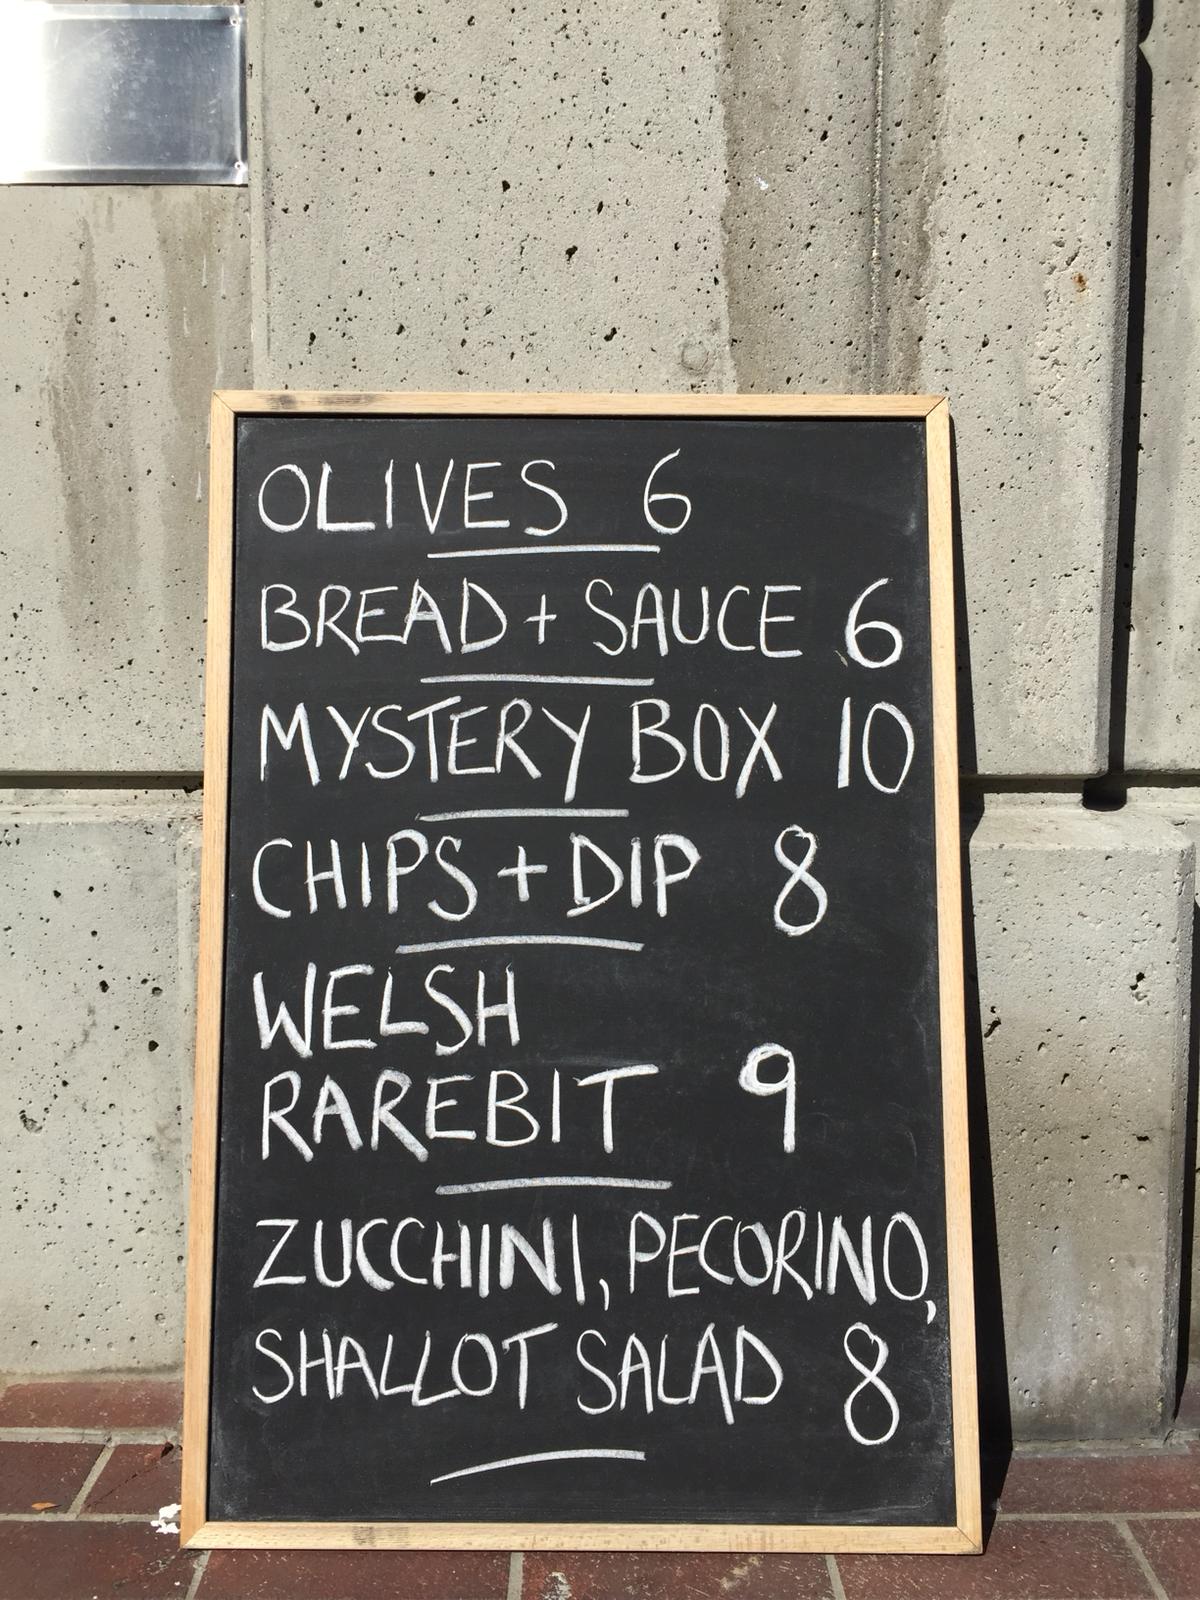 OLIVES 6
BREAD + SAUCE 6
MYSTERY BOX 10
CHIPS + DIP 8
WELSH
RAREBIT 9
ZUCCHINI, PECORINO,
SHALLOT SALAD 8